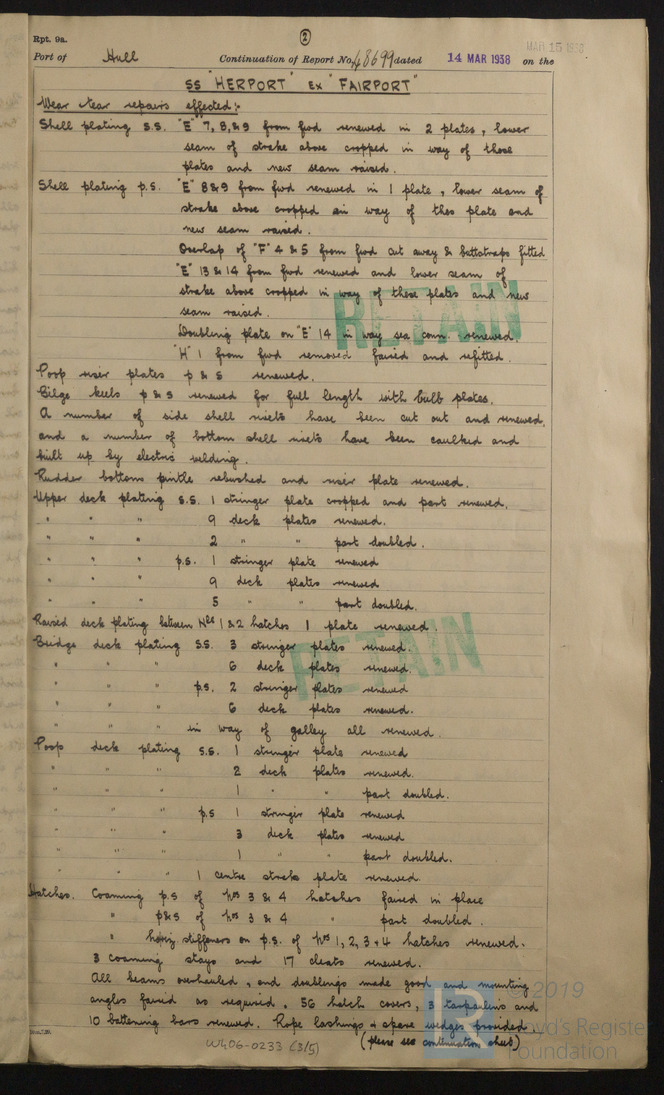 Rpt. 9a.
2
MAR 15 1938
Port of Hull Continuation of Report No. 48699 dated 14 MAR 1938 on the
SS "HERPORT" Ex "FAIRPORT"
Wear tear repairs effected:-
Shell plating s.s. "E" 7, 8, & 9 from fwd renewed in 2 plates, lower
seam of strake above cropped in way of those
plates and new seam raised.
Shell plating p.s. "E" 8 & 9 from fwd renewed in 1 plate, lower seam of
strake above cropped in way of this plate and
new seam raised.
Overlap of "F" 4 & 5 from fwd cut away & buttstraps fitted
"E" 13 & 14 from fwd renewed and lower seam of
strake above cropped in way of these plates and new
seam raised.
RETAIN
Doubling plate on "E" 14 in way sea conn. renewed.
"H" 1 from fwd removed faired and refitted.
Poop riser plates p & s renewed.
Bilge keels p & s renewed for full length with bulb plates.
A number of side shell rivets have been cut out and renewed,
and a number of bottom shell rivets have been caulked and
built up by electric welding.
Rudder bottom pintle rebushed and riser plate renewed.
Upper deck plating s.s. 1 stringer plate cropped and part renewed.
" " " 9 deck plates renewed.
" " " 2 " " part doubled.
" " " p.s. 1 stringer plate renewed
" " " 9 deck plates renewed
" " " 5 " " part doubled.
Raised deck plating between Nos 1 & 2 hatches 1 plate renewed.
RETAIN
Bridge deck plating s.s. 3 stringer plates renewed.
" " " 6 deck plates renewed.
" " " p.s. 2 stringer plates renewed
" " " 6 deck plates renewed.
" " " in way of galley all renewed.
Poop deck plating s.s. 1 stringer plate renewed
" " " 2 deck plates renewed.
" " " 1 " " part doubled.
" " " p.s 1 stringer plate renewed
" " " 3 deck plates renewed
" " " 1 " " part doubled.
" " " 1 centre strake plate renewed.
Hatches. Coaming p.s of Nos 3 & 4 hatches faired in place
" p&s of Nos 3 & 4 " part doubled.
" horiz. stiffeners on p.s. of Nos 1, 2, 3 + 4 hatches renewed.
3 coaming stays and 17 cleats renewed.
All beams overhauled, and doublings made good and mounting
angles faired as required. 56 hatch covers, 3 tarpaulins and
10 battening bars renewed. Rope lashings + spare wedges provided.
(please see continuation sheet)
W406-0233 (3/5)
© 2019
Lloyd's Register
Foundation